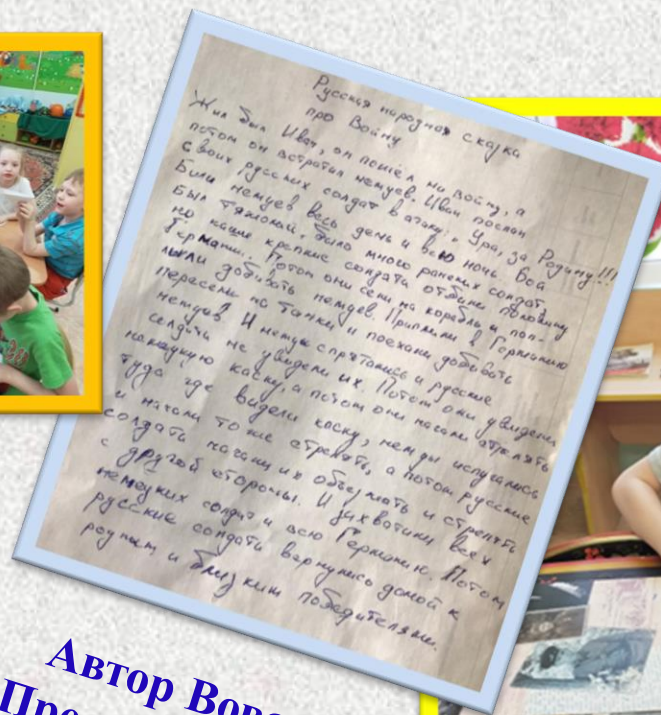 Русская народная сказка
про Войну
Жил был Иван, он пошёл на войну, а
потом он встратил немцев. Иван послал
своих русских солдат в атаку. " Ура, за Родину!!!
Били немцев весь день и всю ночь. Бой
был тяжолый, было много раненых солдат,
но наши крепкие солдаты отбили половину
Германии. Потом они сели на корабль и поп-
лыли добивать немцев. Приплыли в Германию
пересели на танки и поехали добивать
немцев. И немцы спрятались и русские
солдаты не увидели их. Потом они увидели
немецкую каску, а потом они начали стрелять
туда где видели каску, немцы испугались
и начали тоже стрелять, а потом русские
солдаты начали их объезжать и стрелять
с другой стороны. И захватили всех
немецких солдат и всю Германию. Потом
русские солдаты вернулись домой к
родным и близким победителями.
Автор